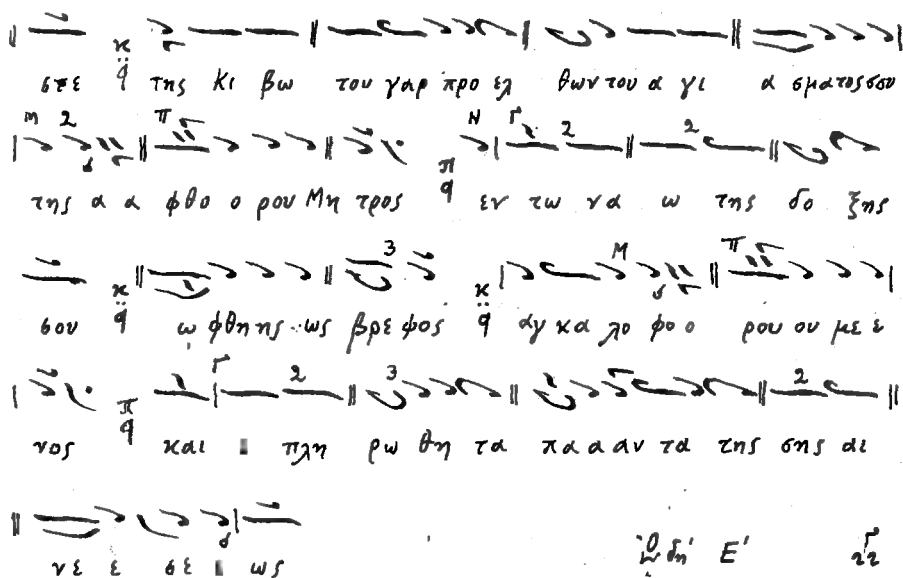 στε της κι βω του γαρ προ ελ θων του α γι α σματος σου
της α α φθο ο ρου Μη τρος εν τω να ω της δο ξης
σου ω φθη ης ως βρε φος αγ κα λο φο ο ρου ου με ε
νος και πλη ρω θη τα πα α αν τα της σης αι
νε ε σε ως Ωδη' Ε'